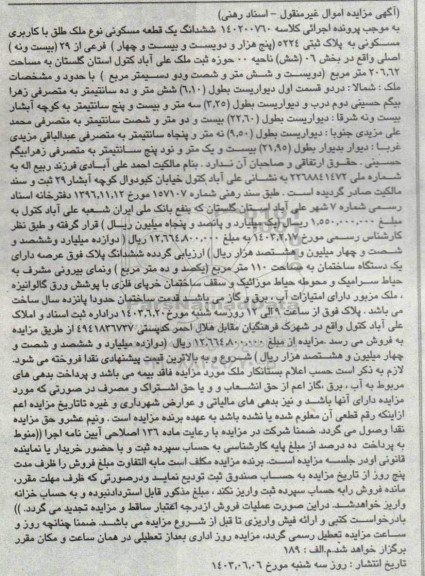 (آگهی مزایده اموال غیرمنقول - اسناد رهنی)
به موجب پرونده اجرائی کلاسه ۱۴۰۲۰۰۷۶۰ ششدانگ یک قطعه مسکونی نوع ملک طلق با کاربری
مسکونی به پلاک ثبتی ۵۲۲۴ (پنج هزار و دویست و بیست و چهار) فرعی از ۲۹ (بیست ونه )
اصلی واقع در بخش ۰۶ (شش) ناحیه ۰۰ حوزه ثبت ملک علی آباد کتول استان گلستان به مساحت
۲۰۶.۶۲ متر مربع (دویست و شش متر و شصت ودو دسیمتر مربع ) با حدود و مشخصات
ملک : شمالا : دردو قسمت اول دیواریست بطول (۶,۱۰) شش متر و ده سانتیمتر به متصرفی زهرا
بیگم حسینی دوم درب و دیواریست بطول (۳,۲۵) سه متر و بیست و پنج سانتیمتر به کوچه آبشار
بیست ونه شرقا : دیواریست بطول (۲۲,۶۰) بیست و دو متر و شصت سانتیمتر به متصرفی محمد
علی مزیدی جنوبا : دیواریست بطول (۹,۵۰) نه متر و پنجاه سانتیمتر به متصرفی عبدالباقی مزیدی
غربا : دیوار بدیوار (۲۱,۹۵) بیست و یک متر و نود پنج سانتیمتر به متصرفی زهرابیگم
حسینی . حقوق ارتفاقی و صاحبان آن ندارد . بنام مالکیت احمد علی آبادی فرزند ربیع اله به
شماره ملی ۲۲۶۸۸۴۱۴۷۲ به نشانی علی آباد کتول خیابان کبودوال کوچه آبشار ۲۹ ثبت و سند
مالکیت صادر گردیده است . طبق سند رهنی شماره ۱۵۷۱۰۷ مورخ ۱۳۹۶,۱۱,۱۲ دفترخانه اسناد
رسمی شماره ۷ شهر علی آباد استان گلستان که بنفع بانک ملی ایران شعبه علی آباد کتول به
مبلغ ۱,۵۵۰,۰۰۰,۰۰۰ ریال (یک میلیارد و پانصد و پنجاه میلیون ریال ) قرار گرفته و طبق نظر
کارشناس رسمی مورخ ۱۴۰۳.۲.۱۷ به مبلغ ۱۲.۶۶۴.۸۰۰.۰۰۰ ریال ( دوازده میلیارد وششصد و
شصت و چهار میلیون و هشتصد هزار ریال ) ارزیابی گردده ششدانگ پلاک فوق عرصه دارای
یک دستگاه ساختمان به مساحت ۱۱۰ متر مربع (یکصد و ده متر مربع ) ونمای بیرونی مشرف به
حیاط سرامیک و محوطه حیاط موزائیک و سقف ساختمان خرپای فلزی با پوشش ورق گالوانیزه
، ملک مزبور دارای امتیازات آب ، برق و گاز می باشد . قدمت ساختمان حدودا پانزده سال ساخت
می باشد . پلاک فوق از ساعت ۹ الی ۱۲ روزسه شنبه مورخ ۱۴۰۳.۶.۲۰ دراداره ثبت اسناد و املاک
علی آباد کتول واقع در شهرک فرهنگیان مقابل هلال احمر کدپستی ۴۹۴۱۸۳۶۷۳۷ از طریق مزایده
به فروش می رسد . مزایده از مبلغ ۱۲.۶۶۴.۸۰۰.۰۰۰ ریال (دوازده میلیارد و ششصد و شصت و
چهار میلیون و هشتصد هزار ریال ) شروع و به بالاترین قیمت پیشنهادی نقدا فروخته می شود.
لازم به ذکر است حسب اعلام بستانکار ملک مورد مزایده فاقد بیمه می باشد و پرداخت بدهی های
مربوط به آب ، برق ،گاز اعم از حق انشعاب و و یا حق اشتراک و مصرف در صورتی که مورد
مزایده دارای آنها باشد و نیز بدهی های مالیاتی و عوارض شهرداری و غیره تاتاریخ مزایده اعم
ازاینکه رقم قطعی آن معلوم شده یا نشده باشد به عهده برنده مزایده است . ونیم عشرو حق مزایده
نقدا وصول می گردد. ضمنا شرکت در مزایده با رعایت ماده ۱۳۶ اصلاحی آیین نامه اجرا ((منوط
به پرداخت ده درصد از مبلغ پایه کارشناسی به حساب سپرده ثبت و با حضور خریدار یا نماینده
قانونی اودر جلسه مزایده است. برنده مزایده مکلف است مابه التفاوت مبلغ فروش را ظرف مدت
پنج روز از تاریخ مزایده به حساب صندوق ثبت تودیع نماید ودرصورتی که ظرف مهلت مقرر،
مانده فروش رابه حساب سپرده ثبت واریز نکند ، مبلغ مذکور قابل استردادنبوده و به حساب خزانه
واریز خواهدشد. دراین صورت عملیات فروش ازدرجه اعتبار ساقط و مزایده تجدید می گردد. ))
بادرخواست کتبی و ارائه فیش واریزی تا قبل از شروع مزایده می باشد. ضمنا چنانچه روز و
ساعت مزایده تعطیل رسمی گردد، مزایده روز اداری بعداز تعطیلی در همان ساعت و مکان مقرر
برگزار خواهد شد.م.الف : ۱۸۹
تاریخ انتشار : روز سه شنبه مورخ ۱۴۰۳.۰۶.۰۶